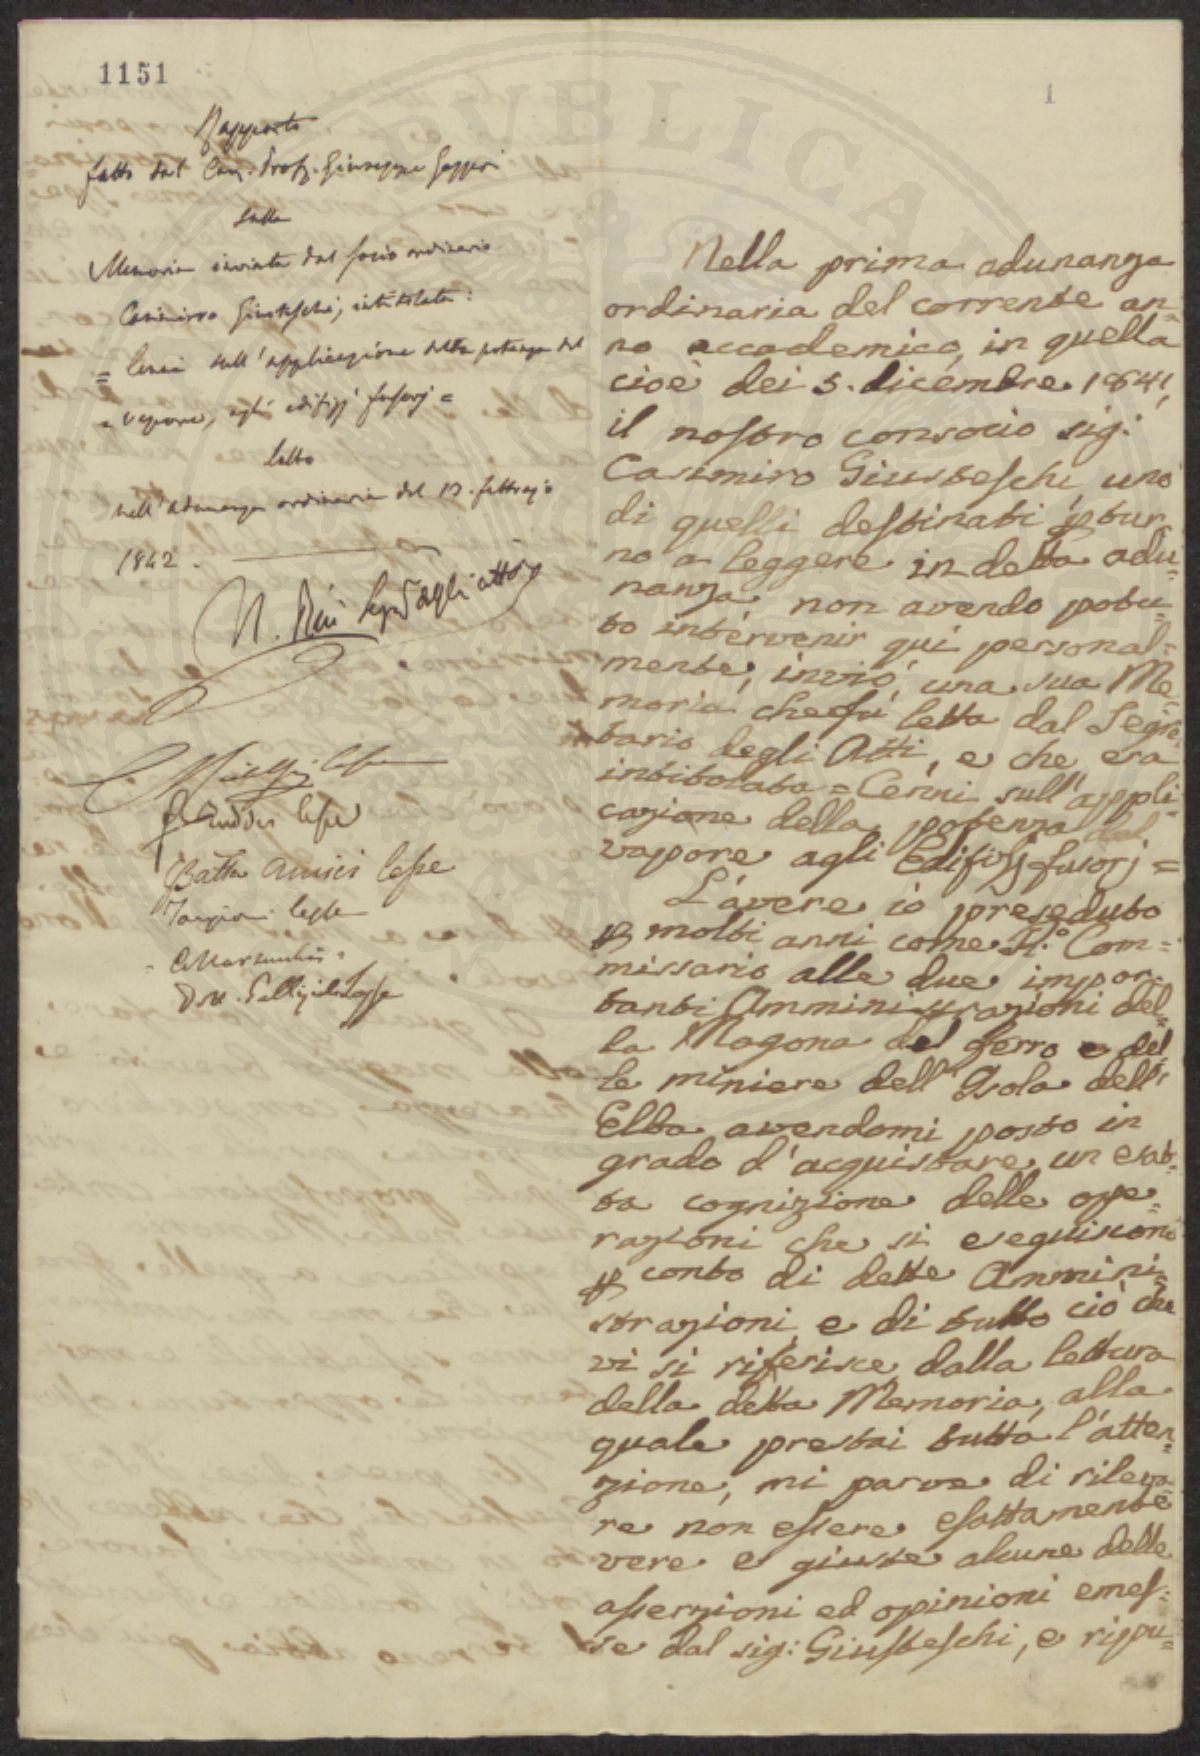 1151
1
Rapporto
fatto dal Cav. Prof. Giuseppe Gazzeri
sulla
Memoria inviata dal socio ordinario
Casimirro Giusteschi, intitolata:
= Cenni sull'applicazione della potenza del
= vapore, agli edifizj fusorj =
letto
nell'adunanza ordinaria del 13. febbrajo
1842.
Segr degli atti
Batta Amici
Nella prima adunanza
ordinaria del corrente an-
no accademico, in quella
cioè dei 5. dicembre 1841,
il nostro consocio sig:
Casimiro Giusteschi, uno
di quelli destinati p tur-
no a leggere in detta adu-
nanza non avendo potu-
to intervenir qui personal=
mente, inviò, una sua Me-
moria che fù letta dal Segre-
tario degli Atti, e che era
intitolata = Cenni sull'appli-
cazione della potenza del
vapore agli Edifizj fusorj =
L'avere io preseduto
p molti anni come R.° Com=
missario alle due impor-
tanti Amministrazioni del=
la Magona del ferro e del=
le miniere dell'Isola dell'
Elba avendomi posto in
grado d'acquistare un esat-
ta cognizione delle ope-
razioni che si eseguiscono
p conto di dette Ammini=
strazioni, e di tutto ciò che
vi si riferisce, dalla lettura
della detta Memoria, alla
quale prestai tutta l'atten=
zione, mi parve di rileva-
re non essere esattamente
vere e giuste alcune delle
asserzioni ed opinioni emes=
se dal sig: Giusteschi, e ripu=